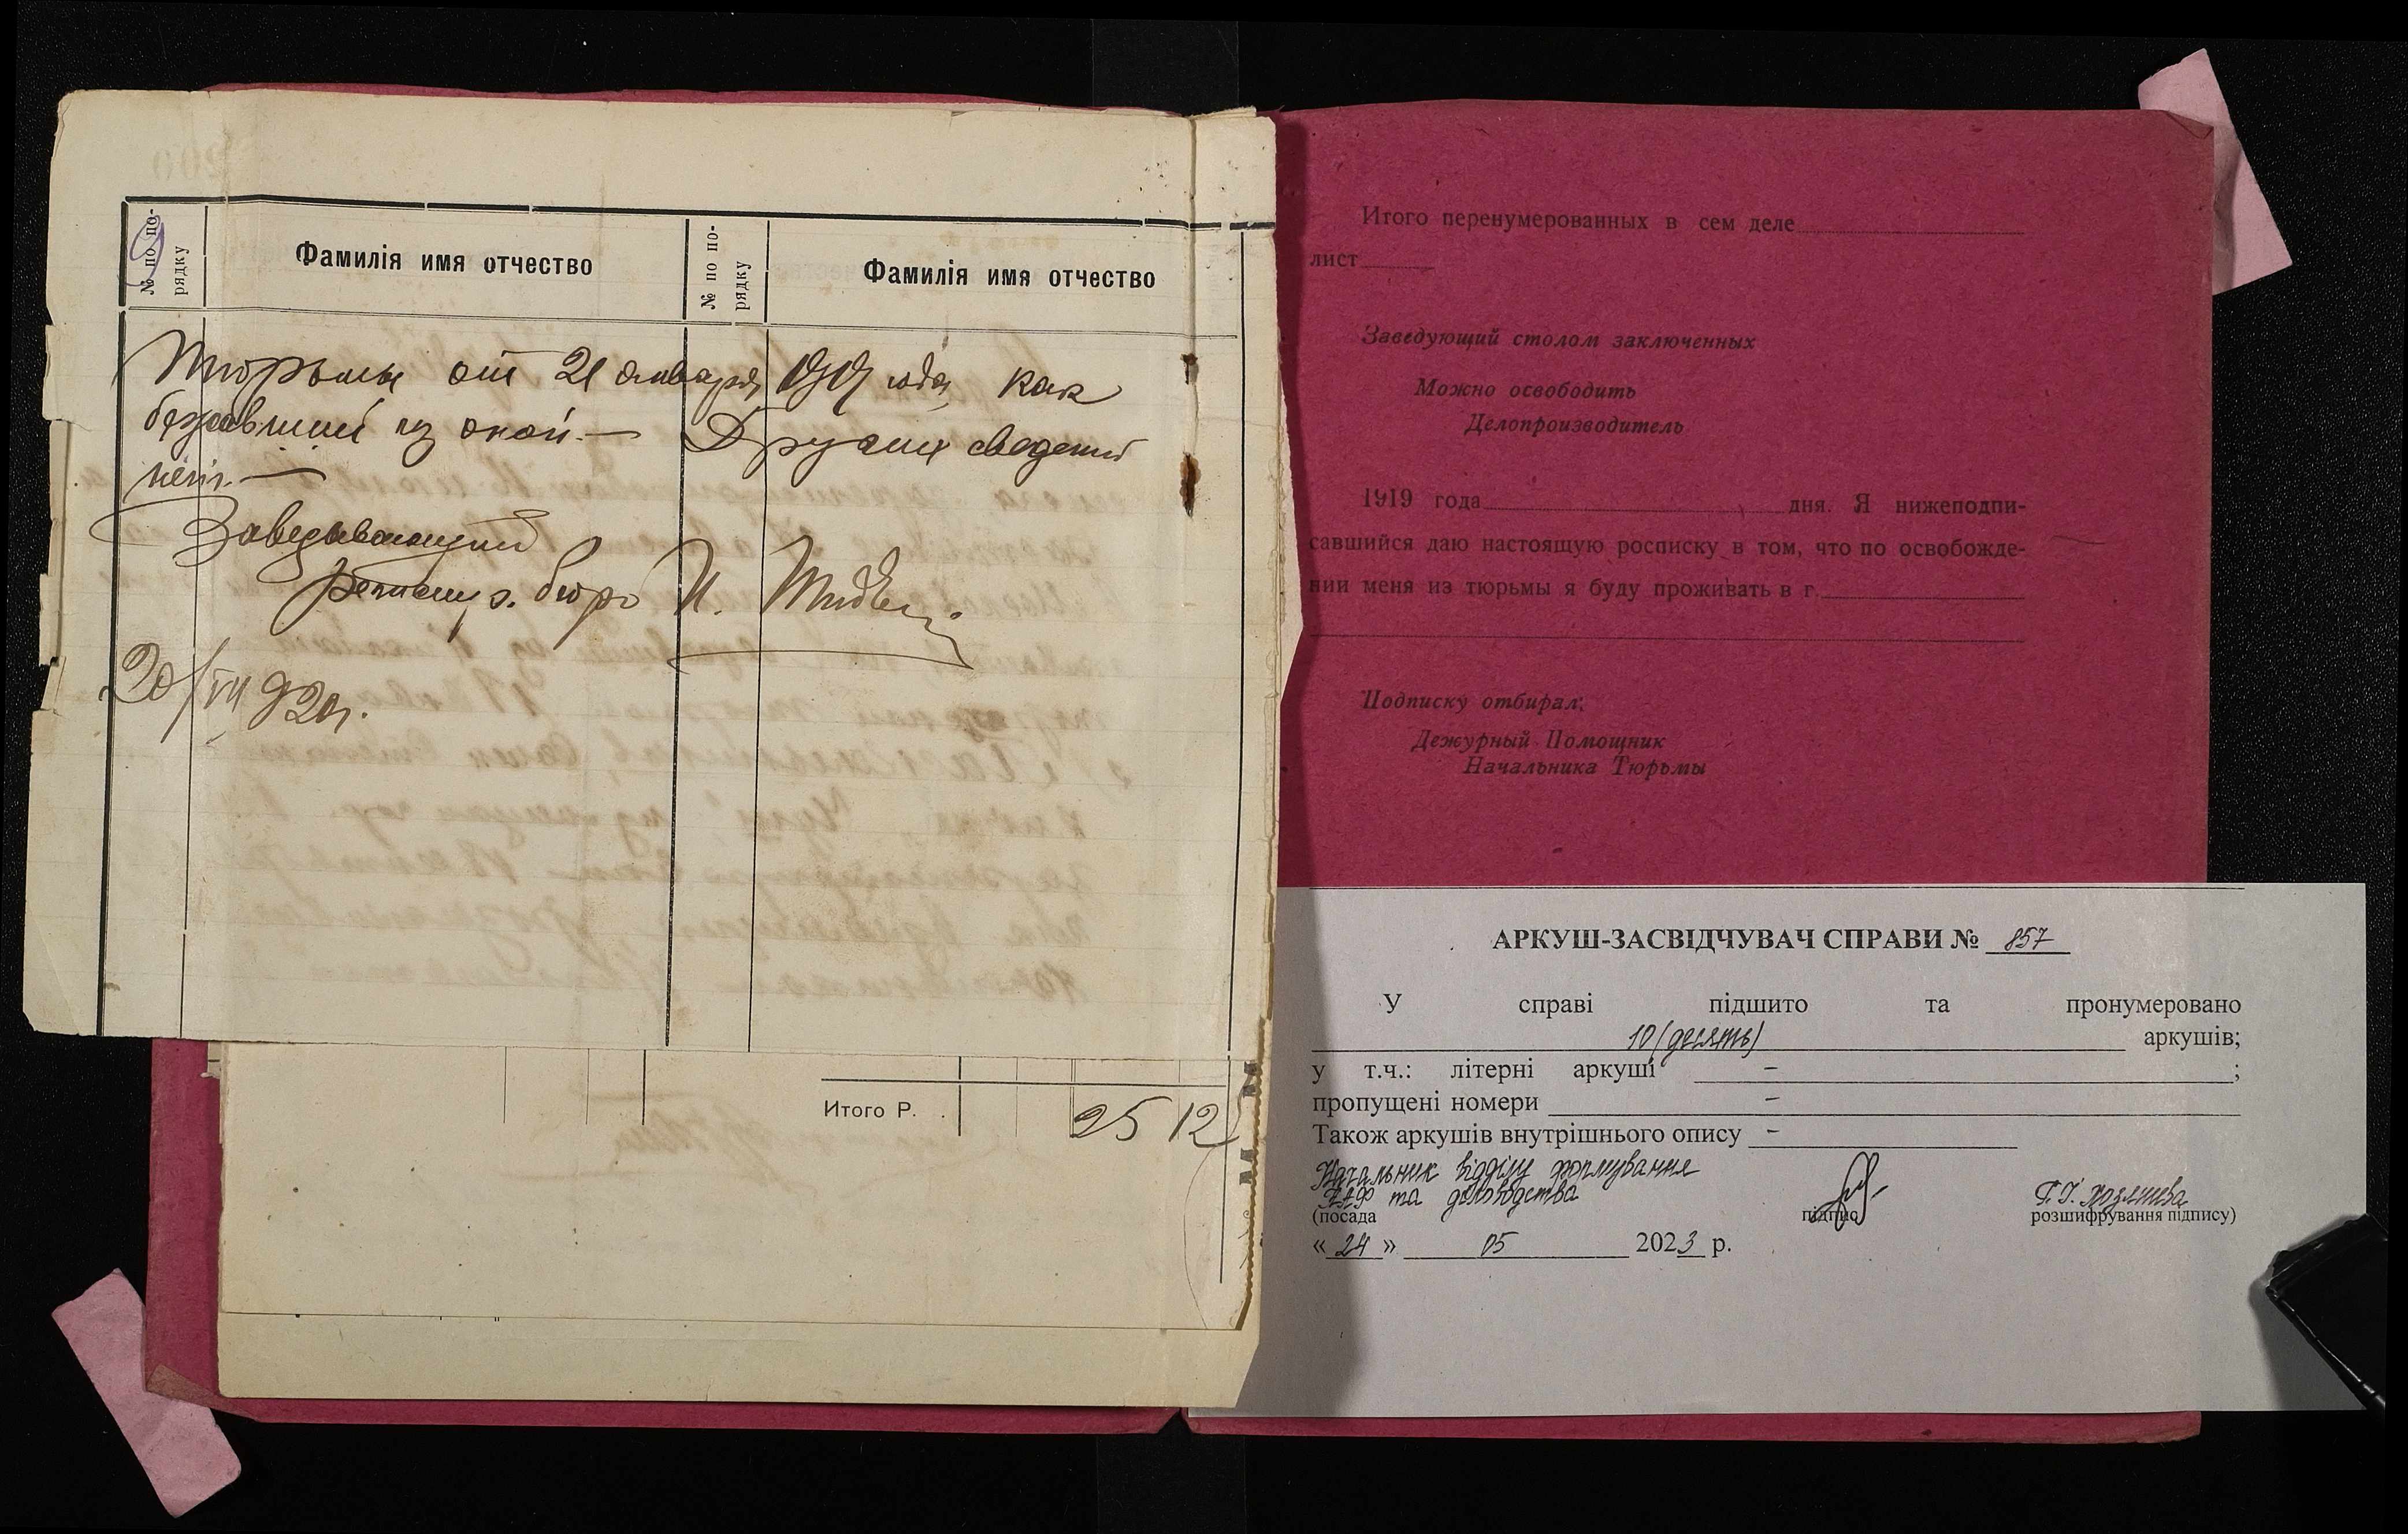 № по по-
рядку
Фамилія имя отчество
№ по по-
рядку
Фамилія имя отчество
Тюрьмы от 21 января 1919 года, как
бежавший из оной.— Других сведений
нет.—
Заведывающий
регистр. бюро И.
20/VII 920г.
Итого Р. .
25 12
Итого перенумерованных в сем деле
лист
Заведующий столом заключенных
Можно освободить
Делопроизводитель
1919 года дня. Я нижеподпи-
савшийся даю настоящую росписку в том, что по освобожде-
нии меня из тюрьмы я буду проживать в г.
Подписку отбирал:
Дежурный Помощник
Начальника Тюрьмы
АРКУШ-ЗАСВІДЧУВАЧ СПРАВИ № 857
У справі підшито та пронумеровано
10 (десять) аркушів;
у т.ч.: літерні аркуші – ;
пропущені номери –
Також аркушів внутрішнього опису –
Начальник відділу формування
НАФ та діловодства
(посада підпис розшифрування підпису)
« 24 » 05 2023 р.